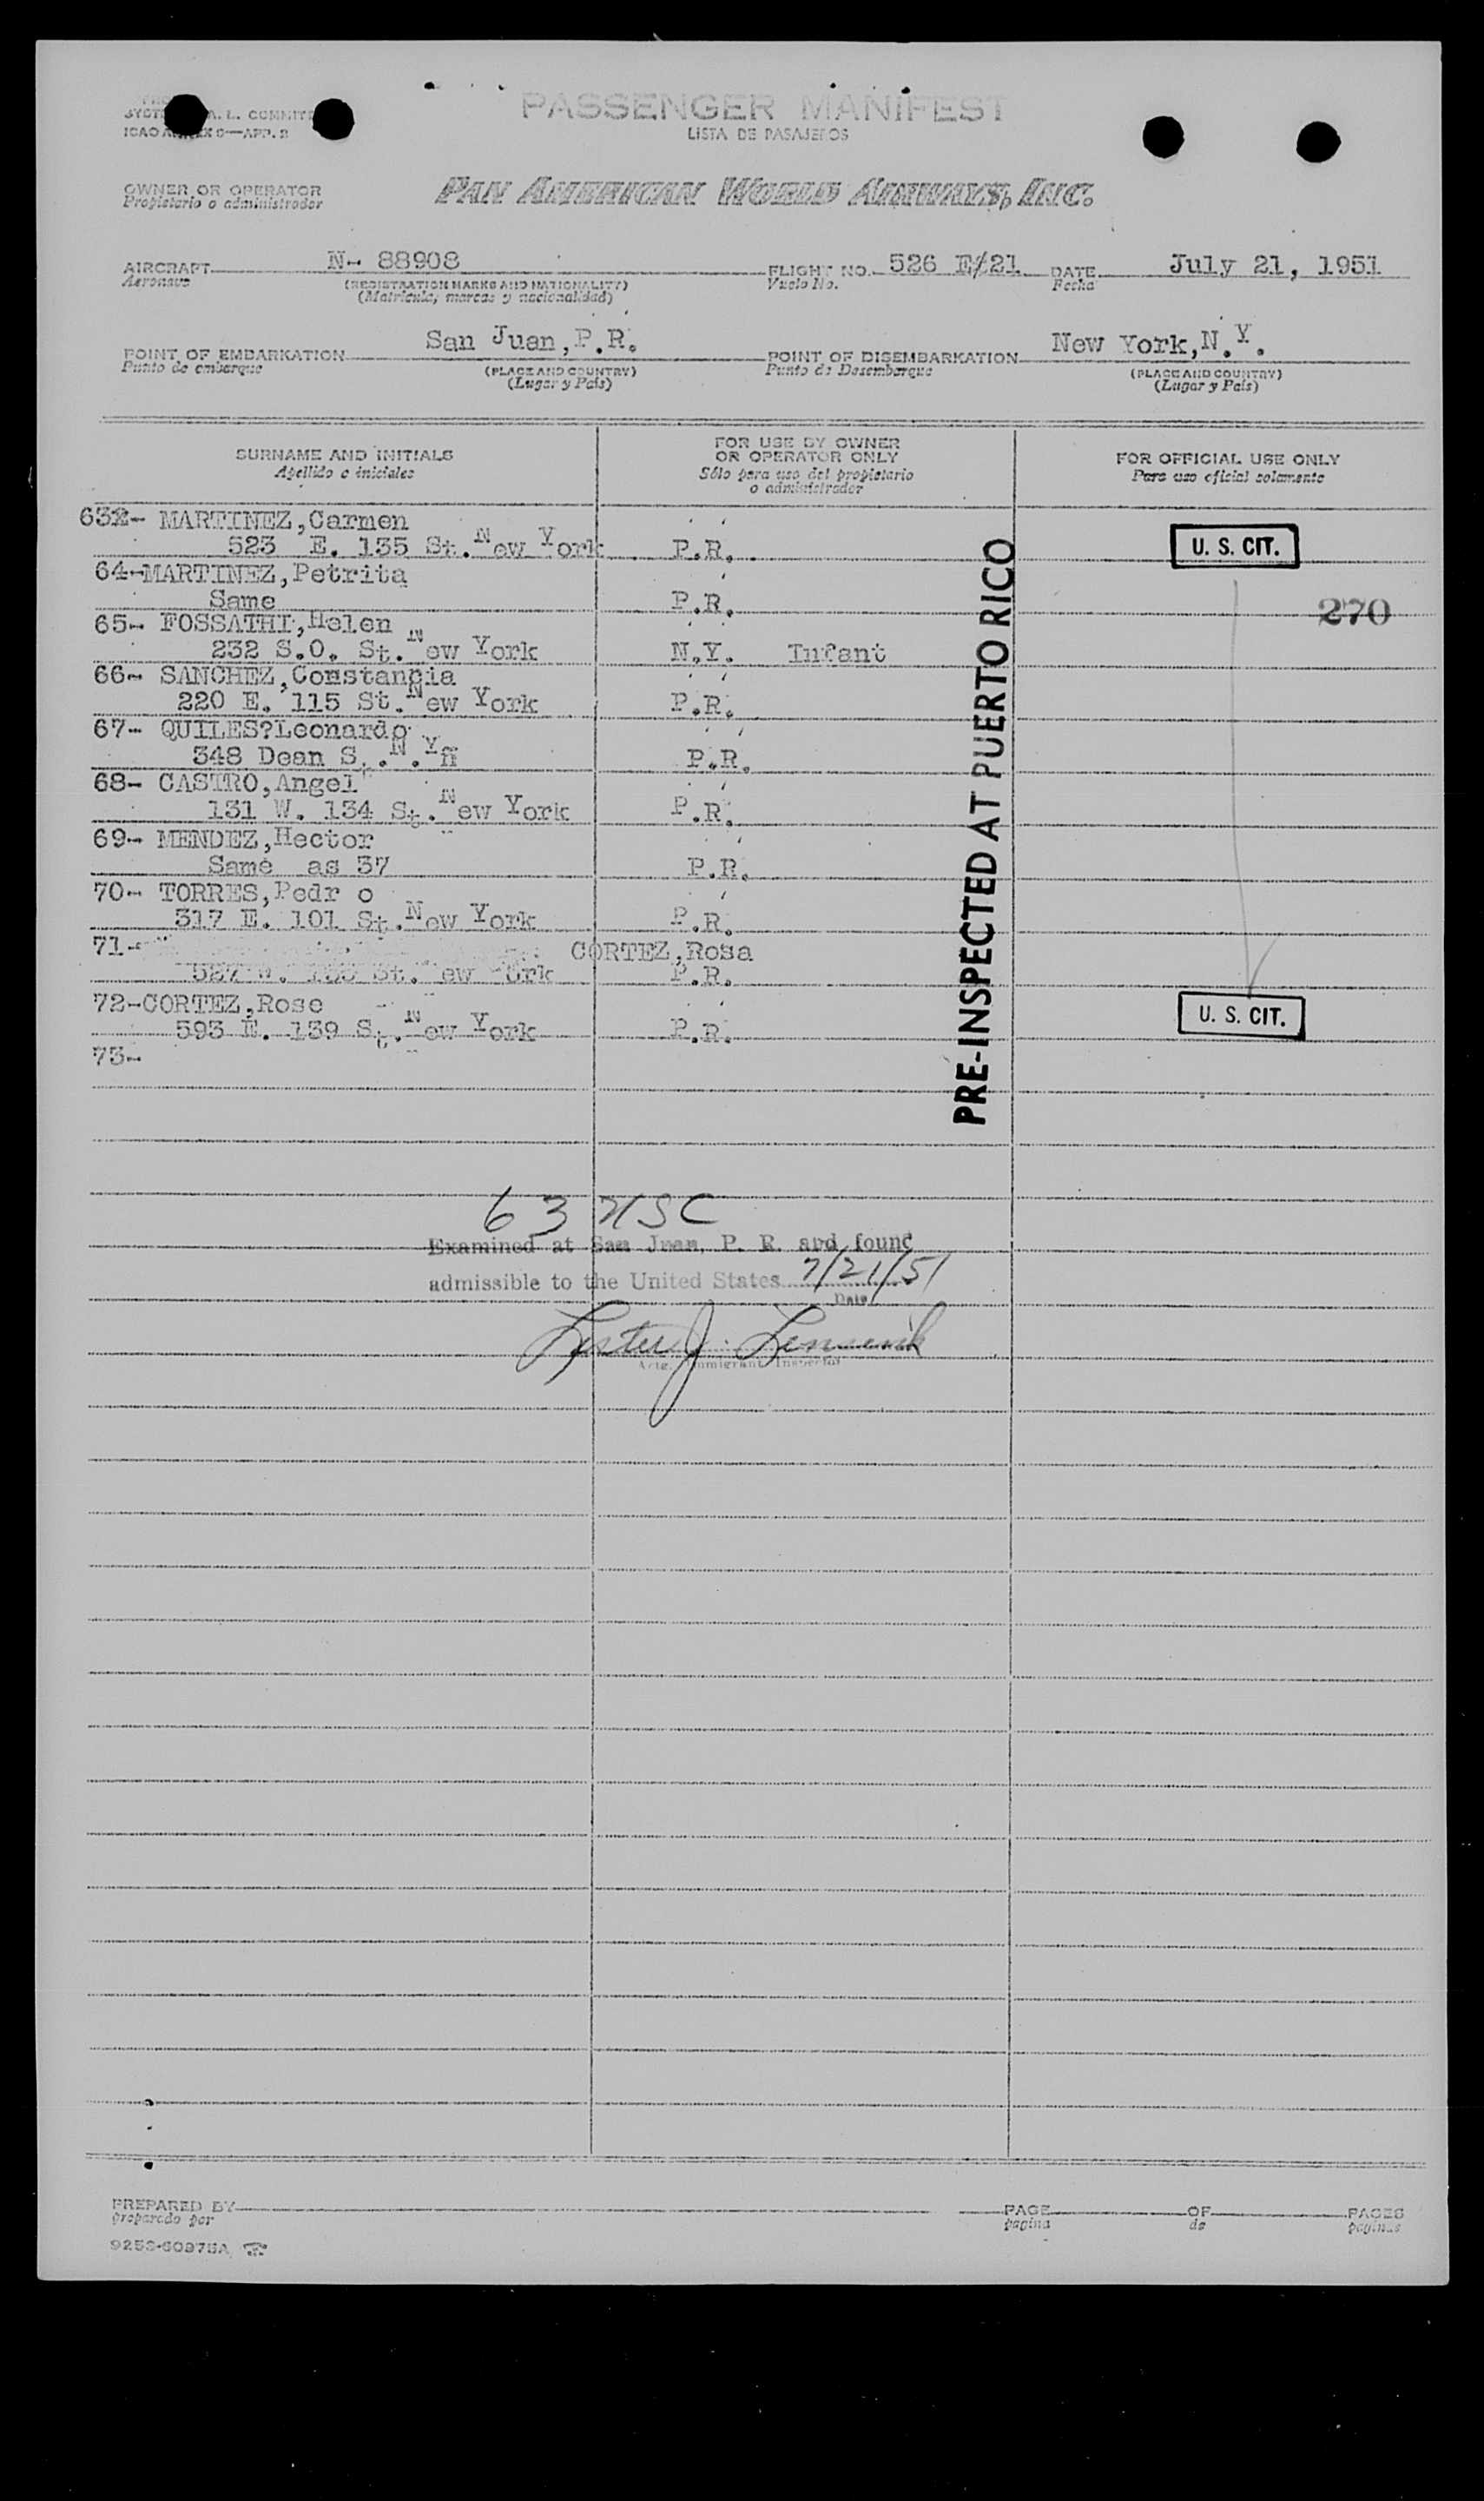 PASSENGER MANIFEST
LISTA DE PASAJEROS
ICAO ANNEX 9—APP. 2
OWNER OR OPERATOR
Propietario o administrador
PAN AMERICAN WORLD AIRWAYS, INC.
AIRCRAFT N- 88908 FLIGHT NO. 526 E/21 DATE July 21, 1951
Aeronave (REGISTRATION MARKS AND NATIONALITY) Vuelo No. Fecha
(Matricula, marcas y nacionalidad)
POINT OF EMBARKATION San Juan,P.R. POINT OF DISEMBARKATION New York,N.Y.
Punto de embarque (PLACE AND COUNTRY) Punto de Desembarque (PLACE AND COUNTRY)
(Lugar y País) (Lugar y País)
SURNAME AND INITIALS FOR USE BY OWNER OR OPERATOR ONLY FOR OFFICIAL USE ONLY
Apellido e iniciales Sólo para uso del propietario o administrador Para uso oficial solamente
MARTINEZ,Carmen
523 E. 135 St. New York P.R. U. S. CIT.
64-MARTINEZ,Petrita
Same P.R. 270
65- FOSSATHI,Helen
232 S.O. St. New York N.Y. Infant
66- SANCHEZ,Constancia
220 E. 115 St. New York P.R.
67- QUILES?Leonardo
348 Dean S P.R.
68- CASTRO,Angel
131 W. 134 St. New York P.R.
69- MENDEZ,Hector
Same as 37 P.R.
70- TORRES,Pedr o
317 E. 101 St. New York P.R.
71- CORTEZ,Rosa
P.R.
72-CORTEZ,Rose
593 E. 139 St. New York P.R. U. S. CIT.
73-
PRE-INSPECTED AT PUERTO RICO
63 USC
Examined at San Juan, P. R. and found
admissible to the United States 7/21/51
Date
Lester J.
Actg. Immigrant Inspector
PREPARED BY PAGE OF PAGES
preparado por pagina de paginas